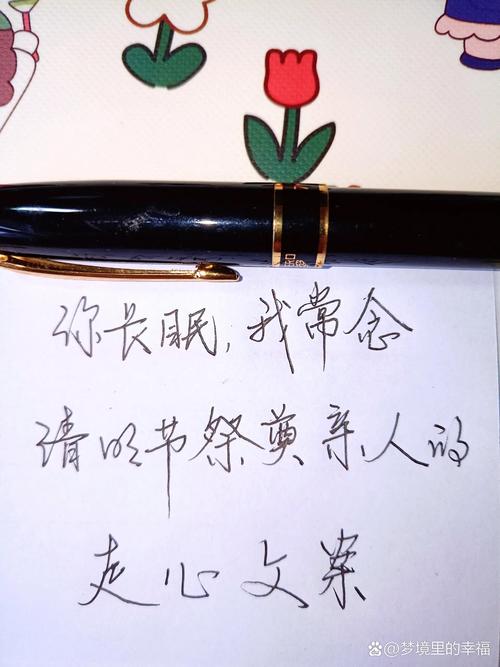 你长眠,我常念
清明节祭奠亲人的
走心文案
梦境里的幸福